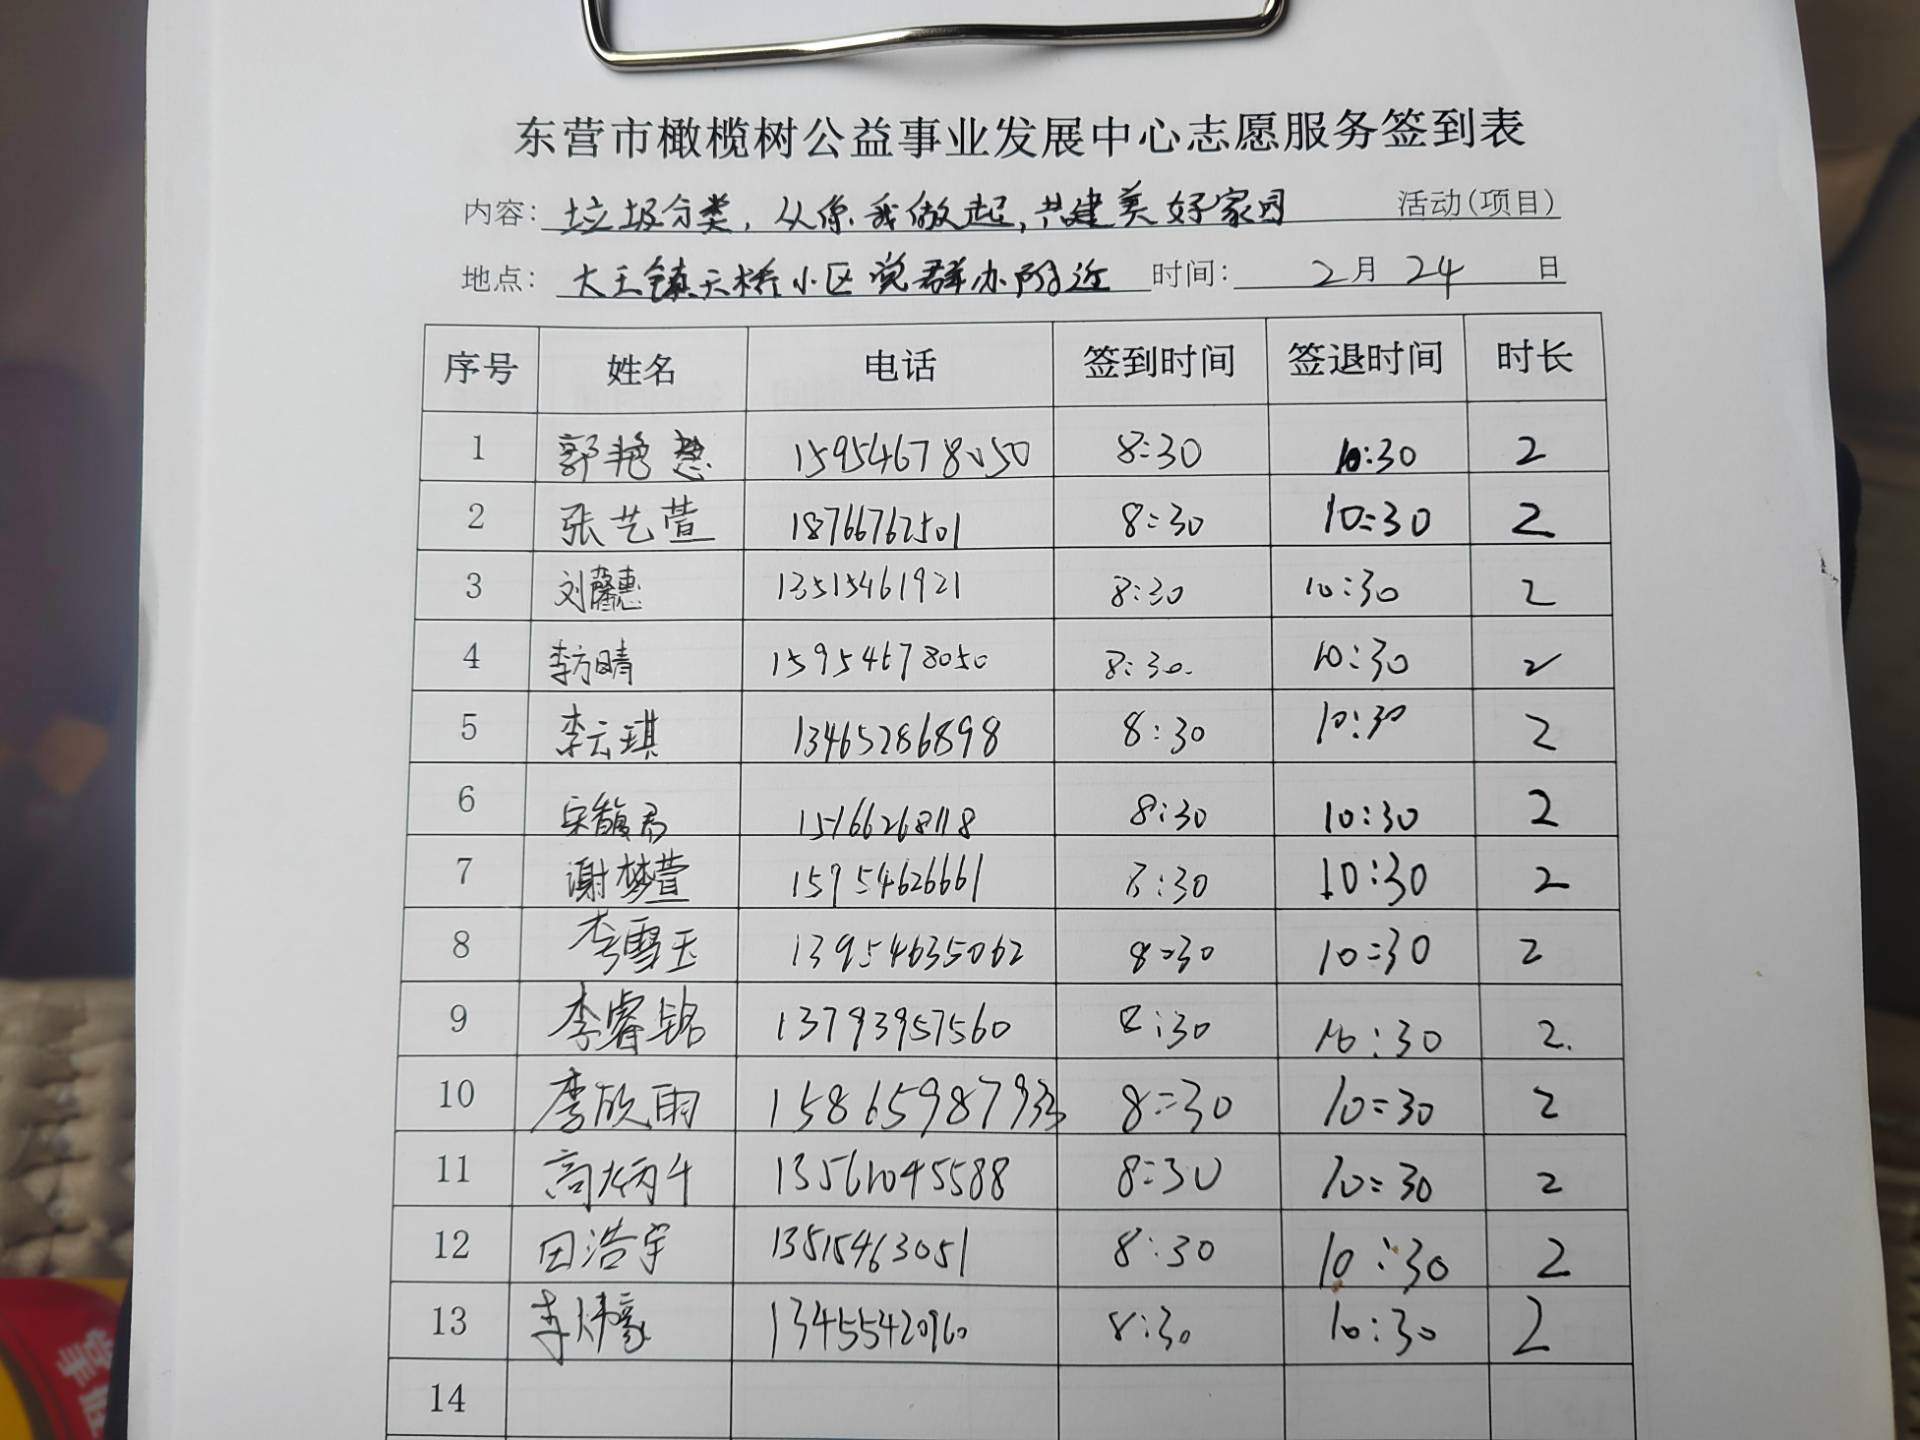 东营市橄榄树公益事业发展中心志愿服务签到表
内容：垃圾分类，从你我做起，共建美好家园 活动(项目)
地点：大王镇天桥小区党群办附近 时间：2月24日
序号 姓名 电话 签到时间 签退时间 时长
1 郭艳慧 15954678050 8:30 10:30 2
2 张艺萱 18766762501 8:30 10:30 2
3 刘馨惠 13515461921 8:30 10:30 2
4 李方晴 15954678050 8:30. 10:30 2
5 李云琪 13465286898 8:30 10:30 2
6 宋馥君 15166268118 8:30 10:30 2
7 谢梦萱 15954626661 8:30 10:30 2
8 李雪玉 13954635062 8:30 10:30 2
9 李睿铭 13793957560 8:30 10:30 2.
10 李欣雨 15865987933 8:30 10:30 2
11 高炳千 13561045588 8:30 10:30 2
12 田浩宇 13515463051 8:30 10:30 2
13 李炜豪 13455420960 8:30 10:30 2
14